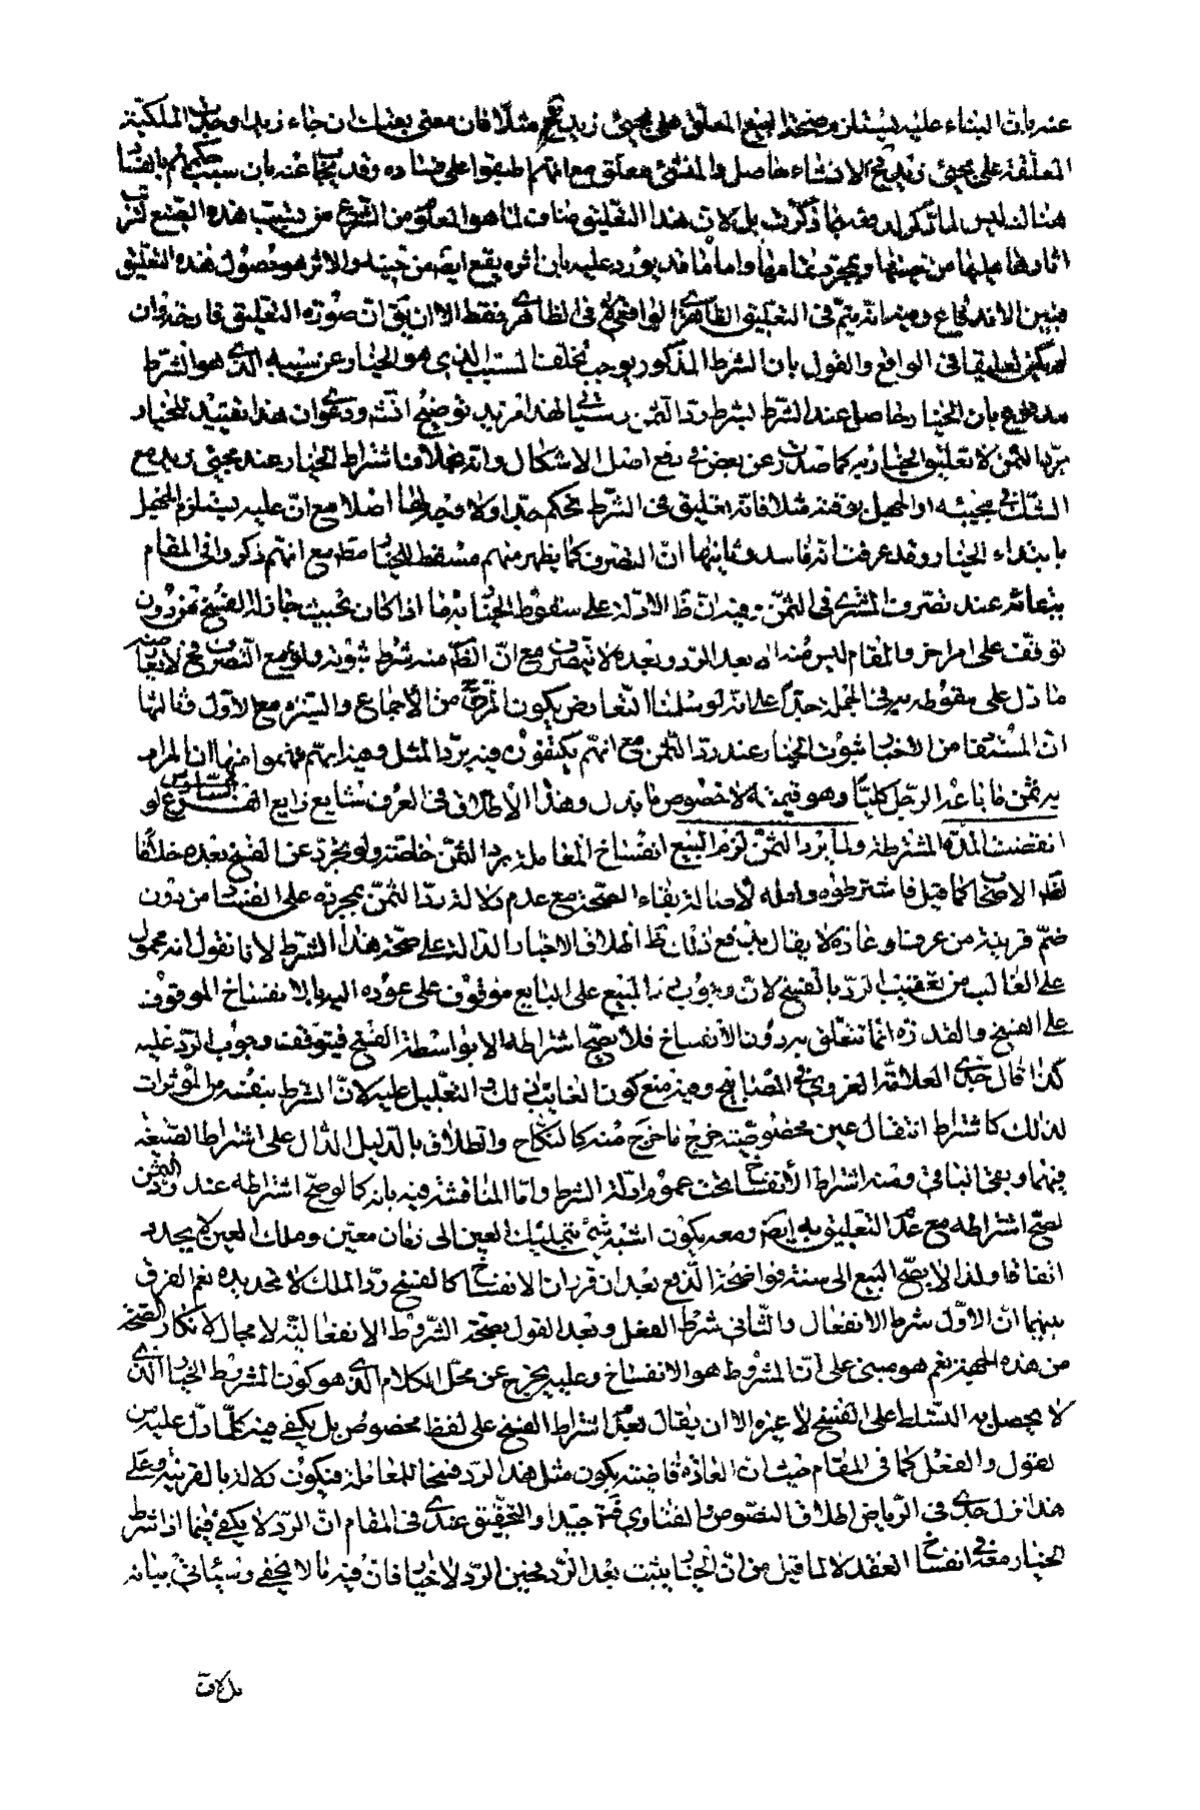 عنه بان البناء عليه يستلزم صحة البيع المعلق على مجيئ زيد مثلا فان معنى بعتك ان جاء زيد اوجدت الملكية
المعلقة على مجيئ زيد فالانشاء حاصل والمنشئ معلق مع انهم اطبقوا على فساده وقد يجاب عنه بان سبب حكمهم بالفساد
هنالك ليس لما ذكر او مما ذكرت بل لان هذا التعليق مناف لما هو المعلوم من الشرع من تسبيب هذه الصيغ لترتب
اثارها عليها من حينها وبمجرد تمامها واما ما قد يورد عليه بان اثره يقع ايضا من حينه والاثر هو حصول هذه التعليق
فبين الاندفاع وفيه انه يتم فى التعليق الظاهرى الواقعى لا فى الظاهرى فقط الا ان يق ان صورة التعليق قادحة وان
لم يكن تعليقا فى الواقع والقول بان الشرط المذكور يوجب تخلف المسبب الذى هو الخيار عن سببه الذى هو الشرط
مدفوع بان الخيار حاصل عند الشرط بشرط رد الثمن وسيأتى لهذا مزيد توضيح انش ودعوى ان هذا تقييد للخيار
برد الثمن لا تعليق الخيار به كما صدرت عن بعض فى دفع اصل الاشكال وانه بخلاف اشتراط الخيار عند مجيئ زيد مع
الشك فى مجيئه او الجهل بوقته مثلا فانه تعليق فى الشرط تحكم جدا ولا وجه لها اصلا مع ان عليه يستلزم الجهل
بابتداء الخيار وقد عرفت انه فاسد وثانيها ان التصرف كما يظهر منهم مسقط للخيار مط مع انهم ذكروا فى المقام
بقائه عند تصرف المشترى فى الثمن وفيه ان ظ الادلة على سقوط الخيار به ما اذا كان بحيث جاز له الفسخ بدون
توقف على امر اخر والمقام ليس منه اذ بعد الرد وبعده لا تصرف مع ان الظ منه شرط ثبوته ولو مع التصرف فح لا يعارضه
ما دل على سقوطه به فى الجملة جدا على انه لو سلمنا التعارض يكون المرجح من الاجماع والسيرة مع الاول وثالثها
ان المستفاد من الاخبار ثبوت الخيار عند رد الثمن مع انهم يكتفون فيه برد المثل وفيه انهم فهموا منها ان المراد
برد ثمن ما باعه الرجل كليا وهو قيمته لا خصوص ما بدل وهذا الاطلاق فى العرف شايع ذايع الفرع السادس لو
انقضت المدة المشترطة ولم يرد الثمن لزم البيع انفساخ المعاملة برد الثمن خاصة ولو تجرد عن الفسخ بعده خلافا
لظ الاصحاب كما قيل فاشترطوه واوله لاصالة بقاء الصحة مع عدم دلالة رد الثمن بمجرده على الفسخ من دون
ضم قرينة من عرف او عادة لا يقال يدفع ذلك ظ اطلاق الاخبار الدالة على صحة هذا الشرط لانا نقول انه محمول
على الغالب من تعقيب الرد بالفسخ لان وجوب رد المبيع على البايع موقوف على عوده اليه بالانفساخ الموقوف
على الفسخ والقدرة انما تتعلق به دون الانفساخ فلا يصح اشتراطه الا بواسطة الفسخ فيتوقف وجوب الرد عليه
كذا قال جدى العلامة الغروى فى المصابيح وفيه منع كون الغالب ذلك والتعليل عليه لان الشرط بنفسه من المؤثرات
لذلك كاشتراط انتقال عين مخصوصة خرج ما خرج منه كالنكاح والطلاق بالدليل الدال على اشتراط الصيغة
فيهما وبقى الباقى ومنه اشتراط الانفساخ تحت عموم ادلة الشرط واما المناقشة فيه بانه كما لو صح اشتراطه عند رد الثمن
لصح اشتراطه مع عدم التعليق به ايضا ومعه يكون اشبه شئ بتمليك العين الى زمان معين وملك العين لا يحد به
اتفاقا ولذا لا يصح البيع الى سنة فواضحة الدفع بعد ان قرر ان الانفساخ كالفسخ رد الملك لا تحديده نعم الفرق
بينهما ان الاول شرط الانفعال والثانى شرط الفعل وبعد القول بصحة الشروط الانفعالية لا مجال لانكار الصحة
من هذه الجهة نعم هو مبنى على ان المشروط هو الانفساخ وعليه يخرج عن محل الكلام الذى هو كون المشروط الخيار الذى
لا يحصل به التسلط على الفسخ لا غيره الا ان يقال بعدم اشتراط الفسخ على لفظ مخصوص بل يكفى فيه كلما دل عليه من
لقول والفعل كما فى المقام حيث ان العادة قاضية بكون مثل هذا الرد فسخا للمعاملة فيكون دلالة بالقرينة وعلى
هذا نزل جدى فى الرياض اطلاق النصوص والفتاوى ثمة جيدا والتحقيق عندى فى المقام ان الرد لا يكفى فيما اذا شرط
الخيار معه فى انفساخ العقد لا لما قيل من ان الخيار يثبت بعد الرد فحين الرد لا خيار فان فيه ما لا يخفى وسيأتى بيانه
بل لان